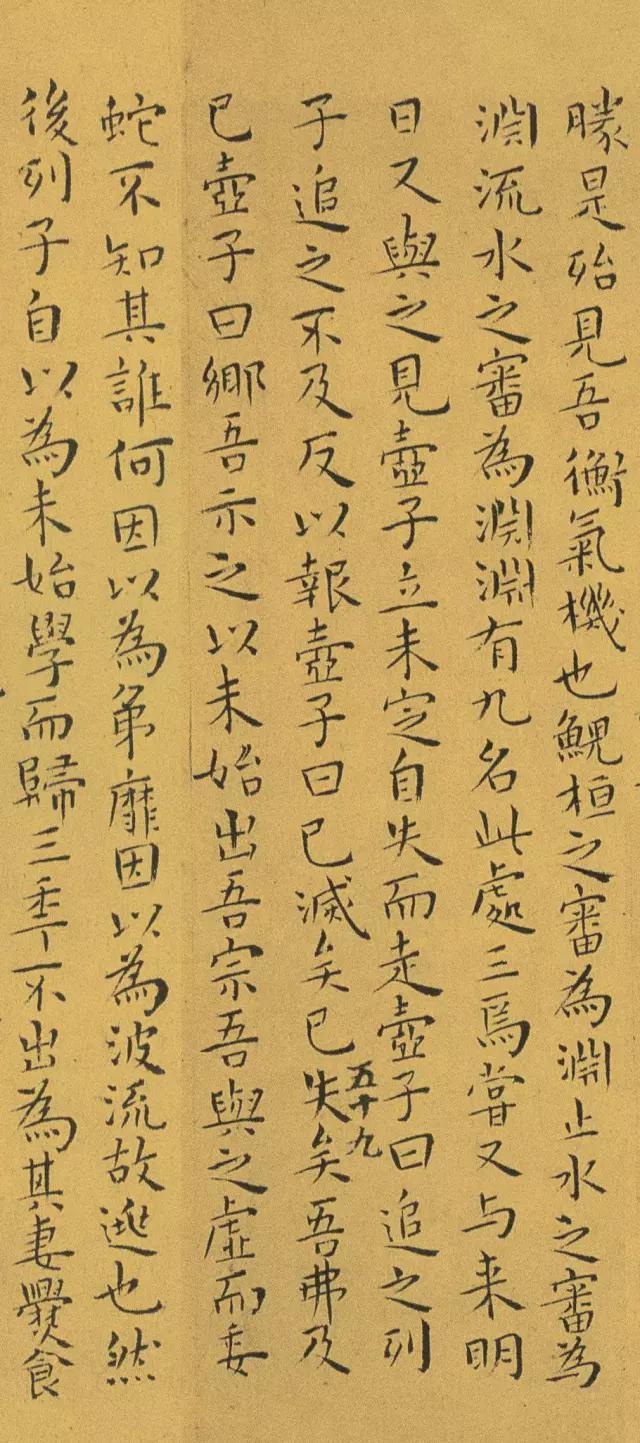 勝是殆見吾衡氣機也鯢桓之審為淵止水之審為
淵流水之審為淵淵有九名此處三焉嘗又与来明
日又與之見壺子立未定自失而走壺子曰追之列
子追之不及反以報壺子曰已滅矣已失矣吾弗及
五十九
已壺子曰鄉吾示之以未始出吾宗吾與之虛而委
蛇不知其誰何因以為弟靡因以為波流故逃也然
後列子自以為未始學而歸三年不出為其妻爨食